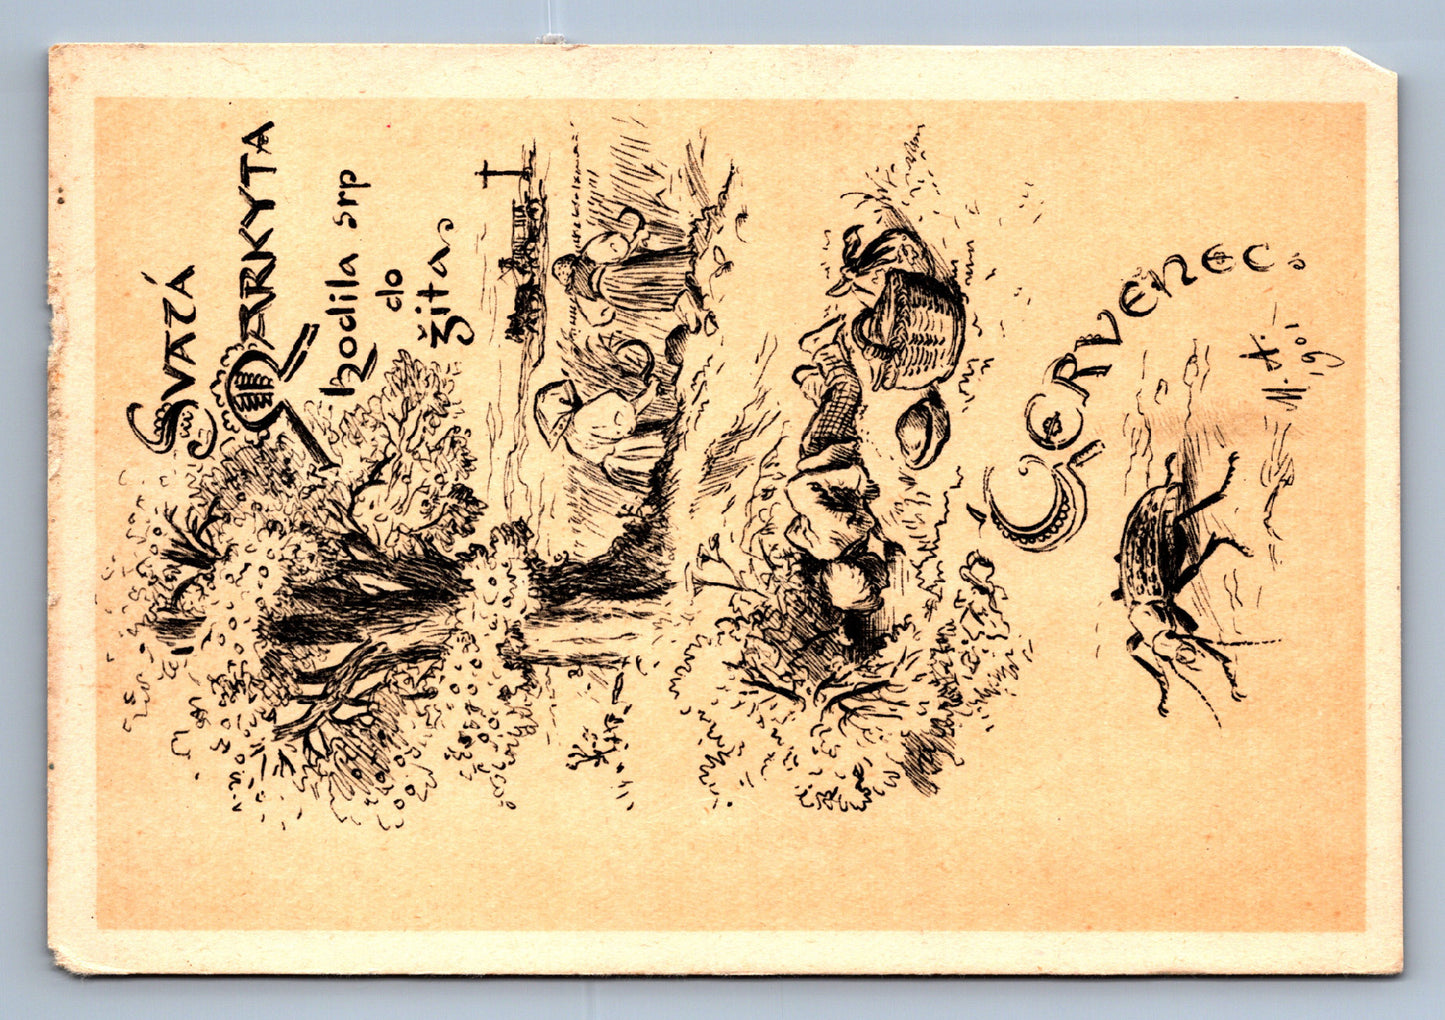 Svatá
Markyta
hodila srp
do
žita
Červenec
M. A.
1901